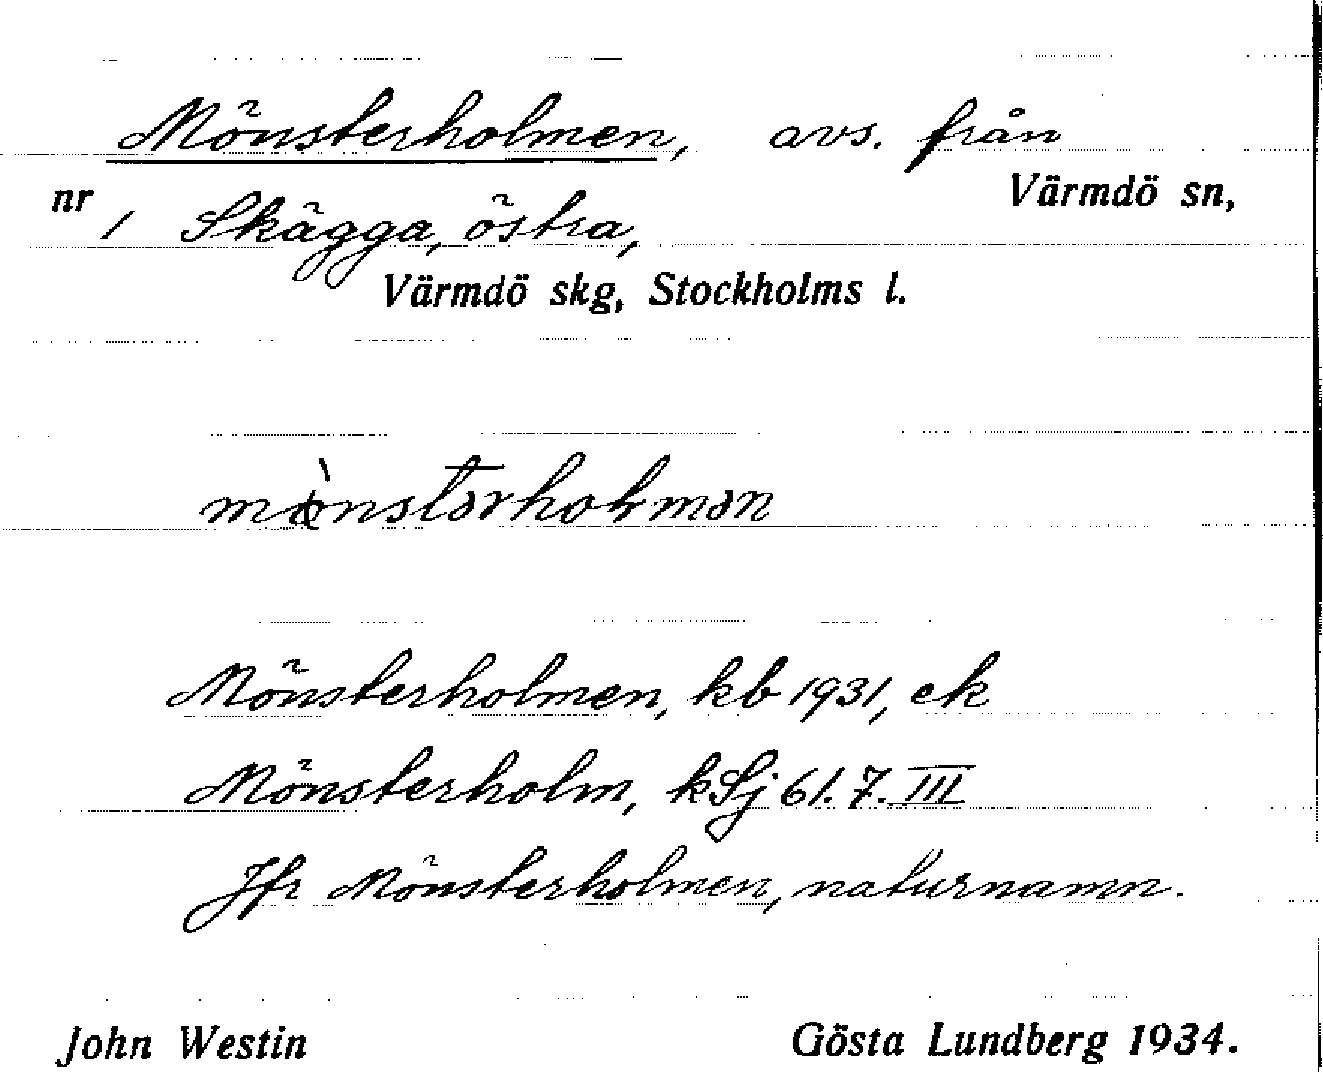 Mönsterholmen, avs. från
nr 1 Skägga, östra, Värmdö sn,
Värmdö skg, Stockholms l.
mònstərholmən
Mönsterholmen, kb 1931, ek
Mönsterholm, kSj 61. 7. III
Jfr Mönsterholmen, naturnamn.
John Westin Gösta Lundberg 1934.